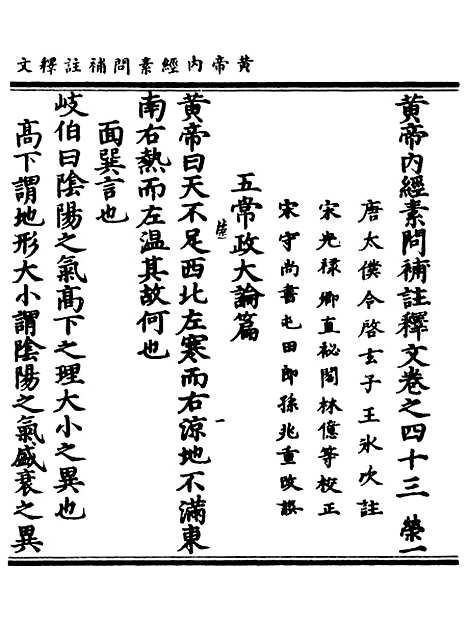 黄帝内經素問補註釋文
黄帝内經素問補註釋文卷之四十三 榮一
唐太僕令啓玄子王氷次註
宋光禄卿直秘閣林億等校正
宋守尚書屯田郎孫兆重改誤
五常政大論篇
黄帝曰天不足西北左寒而右凉地不滿東
南右熱而左温其故何也
面巽言也
岐伯曰陰陽之氣高下之理大小之異也
高下謂地形大小謂陰陽之氣盛衰之異